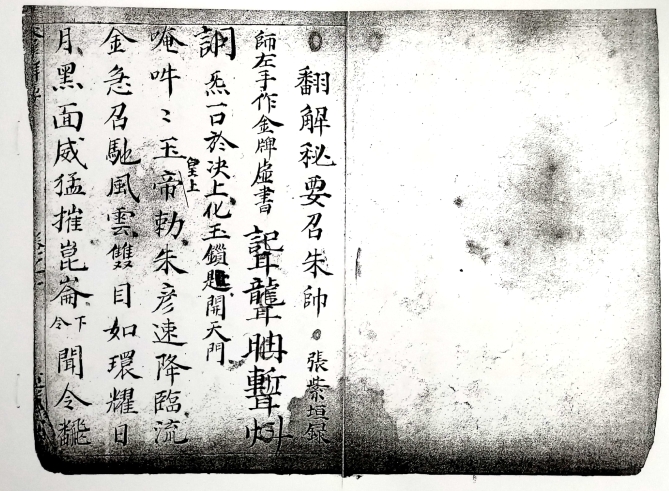 翻解秘要召朱帥 張紫垣録
師左手作金牌虛書
炁一口於決上化玉鎖匙開天門
唵吽〻玉皇上帝勅朱彦速降臨流
金急召馳風雲雙目如環耀日
月黑面威猛摧崑崙下令聞令